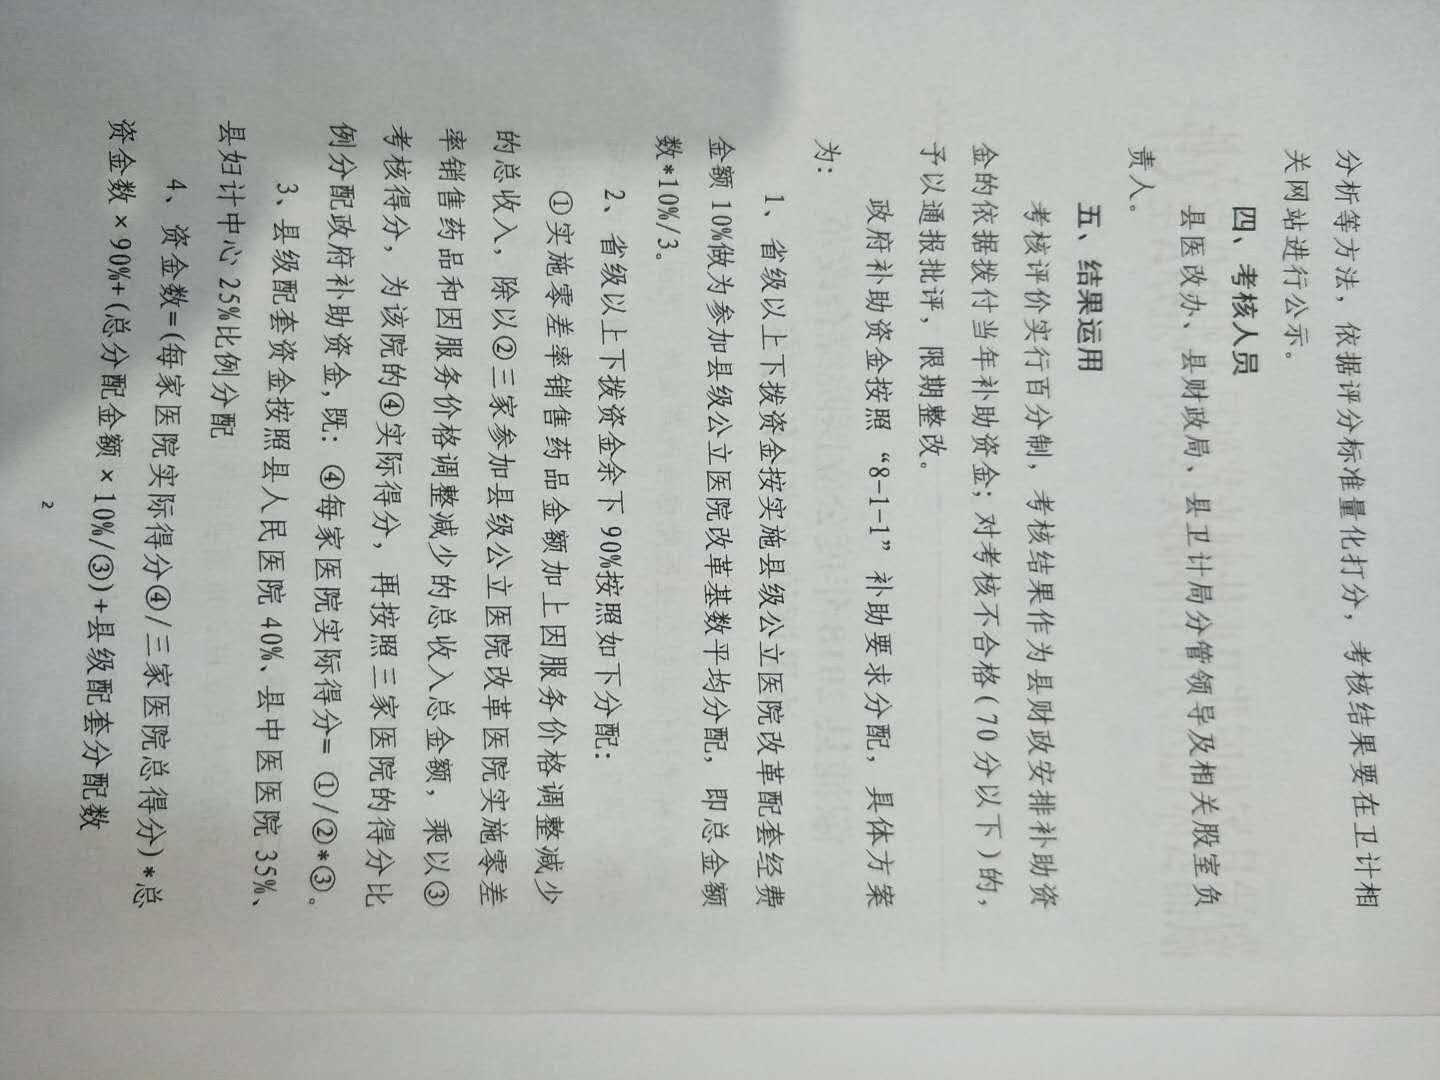 分析等方法，依据评分标准量化打分，考核结果要在卫计相
关网站进行公示。
四、考核人员
县医改办、县财政局、县卫计局分管领导及相关股室负
责人。
五、结果运用
考核评价实行百分制，考核结果作为县财政安排补助资
金的依据拨付当年补助资金；对考核不合格（70分以下）的，
予以通报批评，限期整改。
政府补助资金按照“8-1-1”补助要求分配，具体方案
为：
1、省级以上下拨资金按实施县级公立医院改革配套经费
金额10%做为参加县级公立医院改革基数平均分配，即总金额
数*10%/3。
2、省级以上下拨资金余下90%按照如下分配：
①实施零差率销售药品金额加上因服务价格调整减少
的总收入，除以②三家参加县级公立医院改革医院实施零差
率销售药品和因服务价格调整减少的总收入总金额，乘以③
考核得分，为该院的④实际得分，再按照三家医院的得分比
例分配政府补助资金，既：④每家医院实际得分=①/②*③。
3、县级配套资金按照县人民医院40%、县中医医院35%、
县妇计中心25%比例分配
4、资金数=(每家医院实际得分④/三家医院总得分)*总
资金数×90%+(总分配金额×10%/③))+县级配套分配数
2